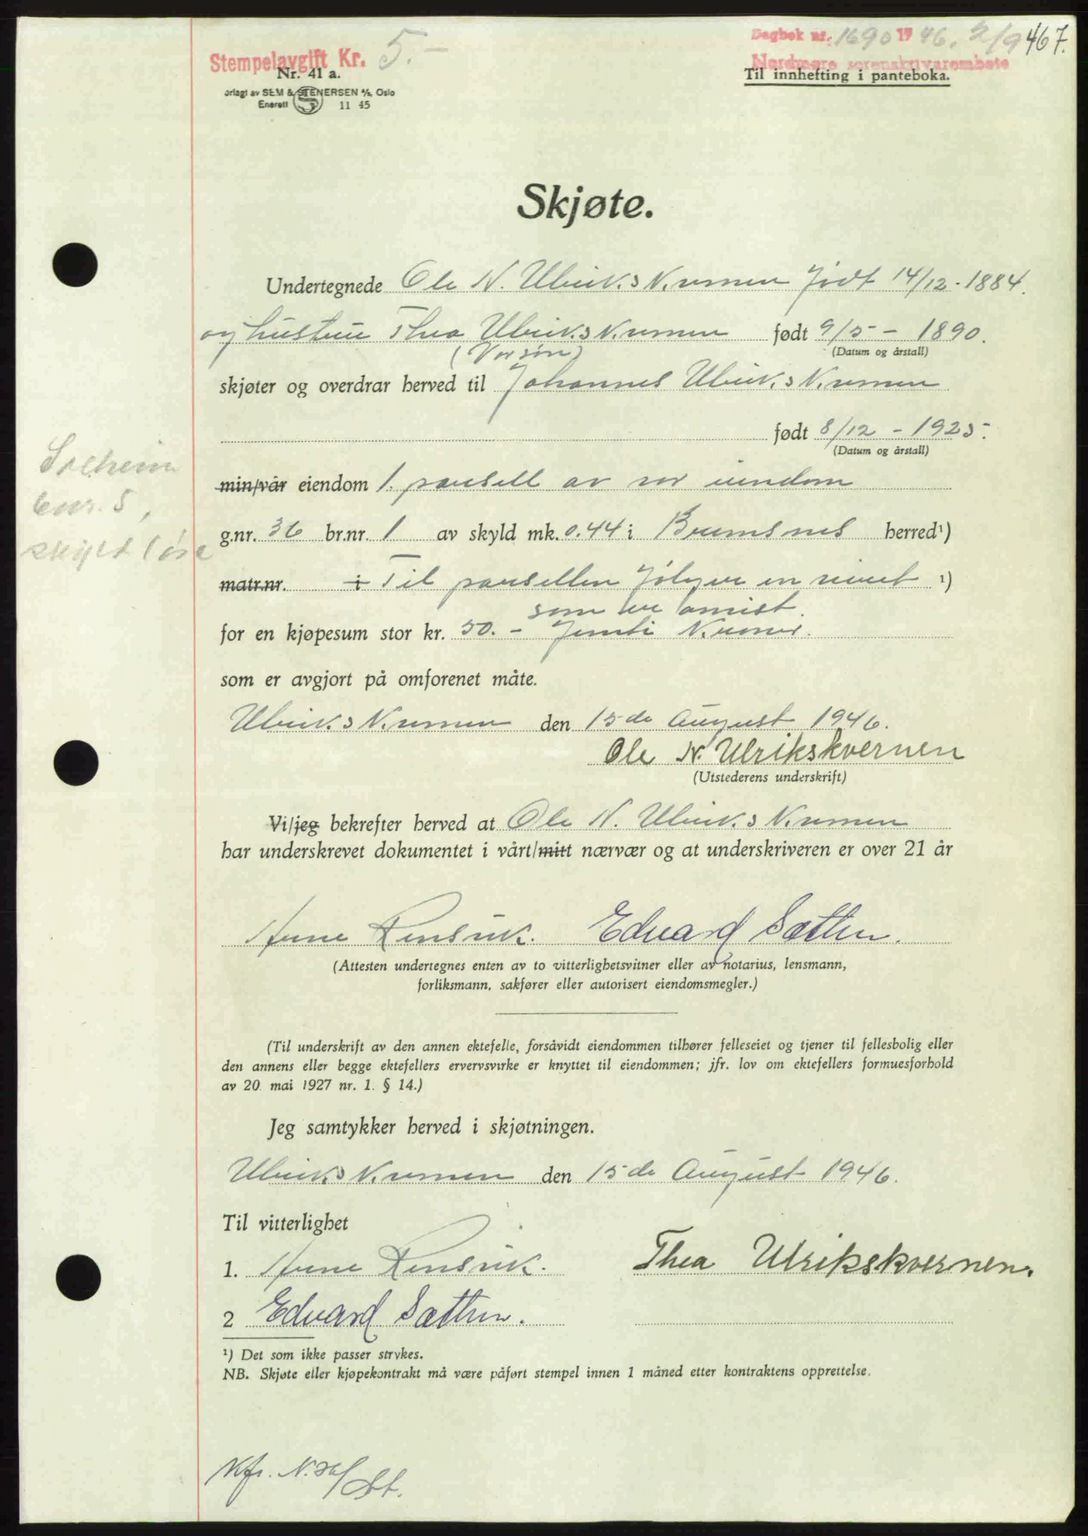 Stempelavgift Kr. 5.-
Dagbok nr. 1690 1946. 2/9 467.
Nordmøre sorenskriverembete
Nr. 41 a.
Til innhefting i panteboka.
orlagt av SEM & STENERSEN A/S, Oslo
Enerett S 11 45
Skjøte.
Undertegnede Ole N. Ulrikskvernen født 14/12-1884.
og hustru Thea Ulrikskvernen født 9/5-1890.
(Datum og årstall)
(Vor sønn)
skjøter og overdrar herved til Johannes Ulrikskvernen
født 8/12-1925.
(Datum og årstall)
Solheim
bnr. 5,
skyld 1 øre
min/vår eiendom 1. parsell av vor eiendom
g.nr. 36 br.nr. 1 av skyld mk. 0.44 i Bremsnes herred¹)
matr.nr. i Til parsellen følger en ¹)
som er
for en kjøpesum stor kr. 50.- femti Kroner.
som er avgjort på omforenet måte.
Ulrikskvernen den 15de August 1946.
Ole N. Ulrikskvernen
(Utstederens underskrift)
Vi/jeg bekrefter herved at Ole N. Ulrikskvernen
har underskrevet dokumentet i vårt/mitt nærvær og at underskriveren er over 21 år
Arne Rensvik. Edvard Sætten.
(Attesten undertegnes enten av to vitterlighetsvitner eller av notarius, lensmann,
forliksmann, sakfører eller autorisert eiendomsmegler.)
(Til underskrift av den annen ektefelle, forsåvidt eiendommen tilhører felleseiet og tjener til fellesbolig eller
den annens eller begge ektefellers ervervsvirke er knyttet til eiendommen; jfr. lov om ektefellers formuesforhold
av 20. mai 1927 nr. 1. § 14.)
Jeg samtykker herved i skjøtningen.
Ulrikskvernen den 15de August 1946.
Til vitterlighet
1. Arne Rensvik. Thea Ulrikskvernen.
2 Edvard Sætten.
¹) Det som ikke passer strykes.
NB. Skjøte eller kjøpekontrakt må være påført stempel innen 1 måned etter kontraktens opprettelse.